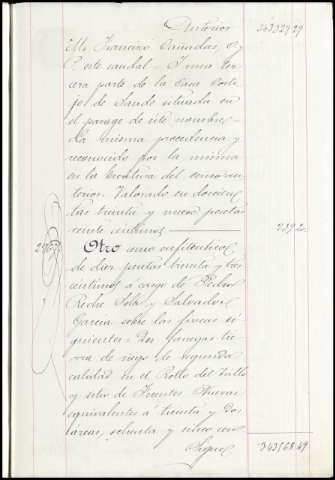 Anterior 343,329.29
Mr. Francisco Cañadas, S. y
P. este caudal. Y una ter-
cera parte de la Casa Corti-
jo de Saude situada en
el parage de este nombre.
La misma procedencia y
reconocido por la misma
en la Escritura del censo an-
terior. Valorado en doscien-
tas treinta y nueve pesetas
veinte centimos 239.20
Otro censo enfiteutico
de dies pesetas treinta y tres
centimos a cargo de Pedro
Reche Sola y Salvador
Garcia sobre las fincas si-
guientes. Dos fanegas tie-
rra de riego de segunda
calidad en el Rollo del Valle
y sitio de Fuentes Nuevas
equivalentes a treinta y dos
áreas, ochenta y cinco cen-
Sigue 343568.49